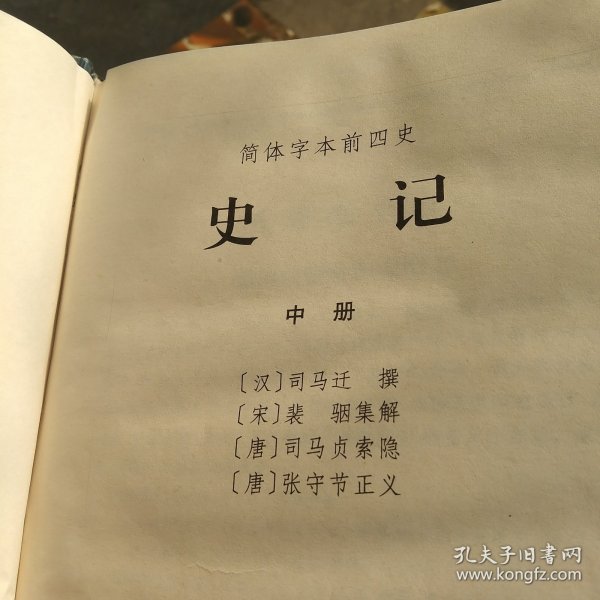 简体字本前四史
史 记
中 册
〔汉〕司马迁 撰
〔宋〕裴 骃集解
〔唐〕司马贞索隐
〔唐〕张守节正义
孔夫子旧書网
www.kongfz.com